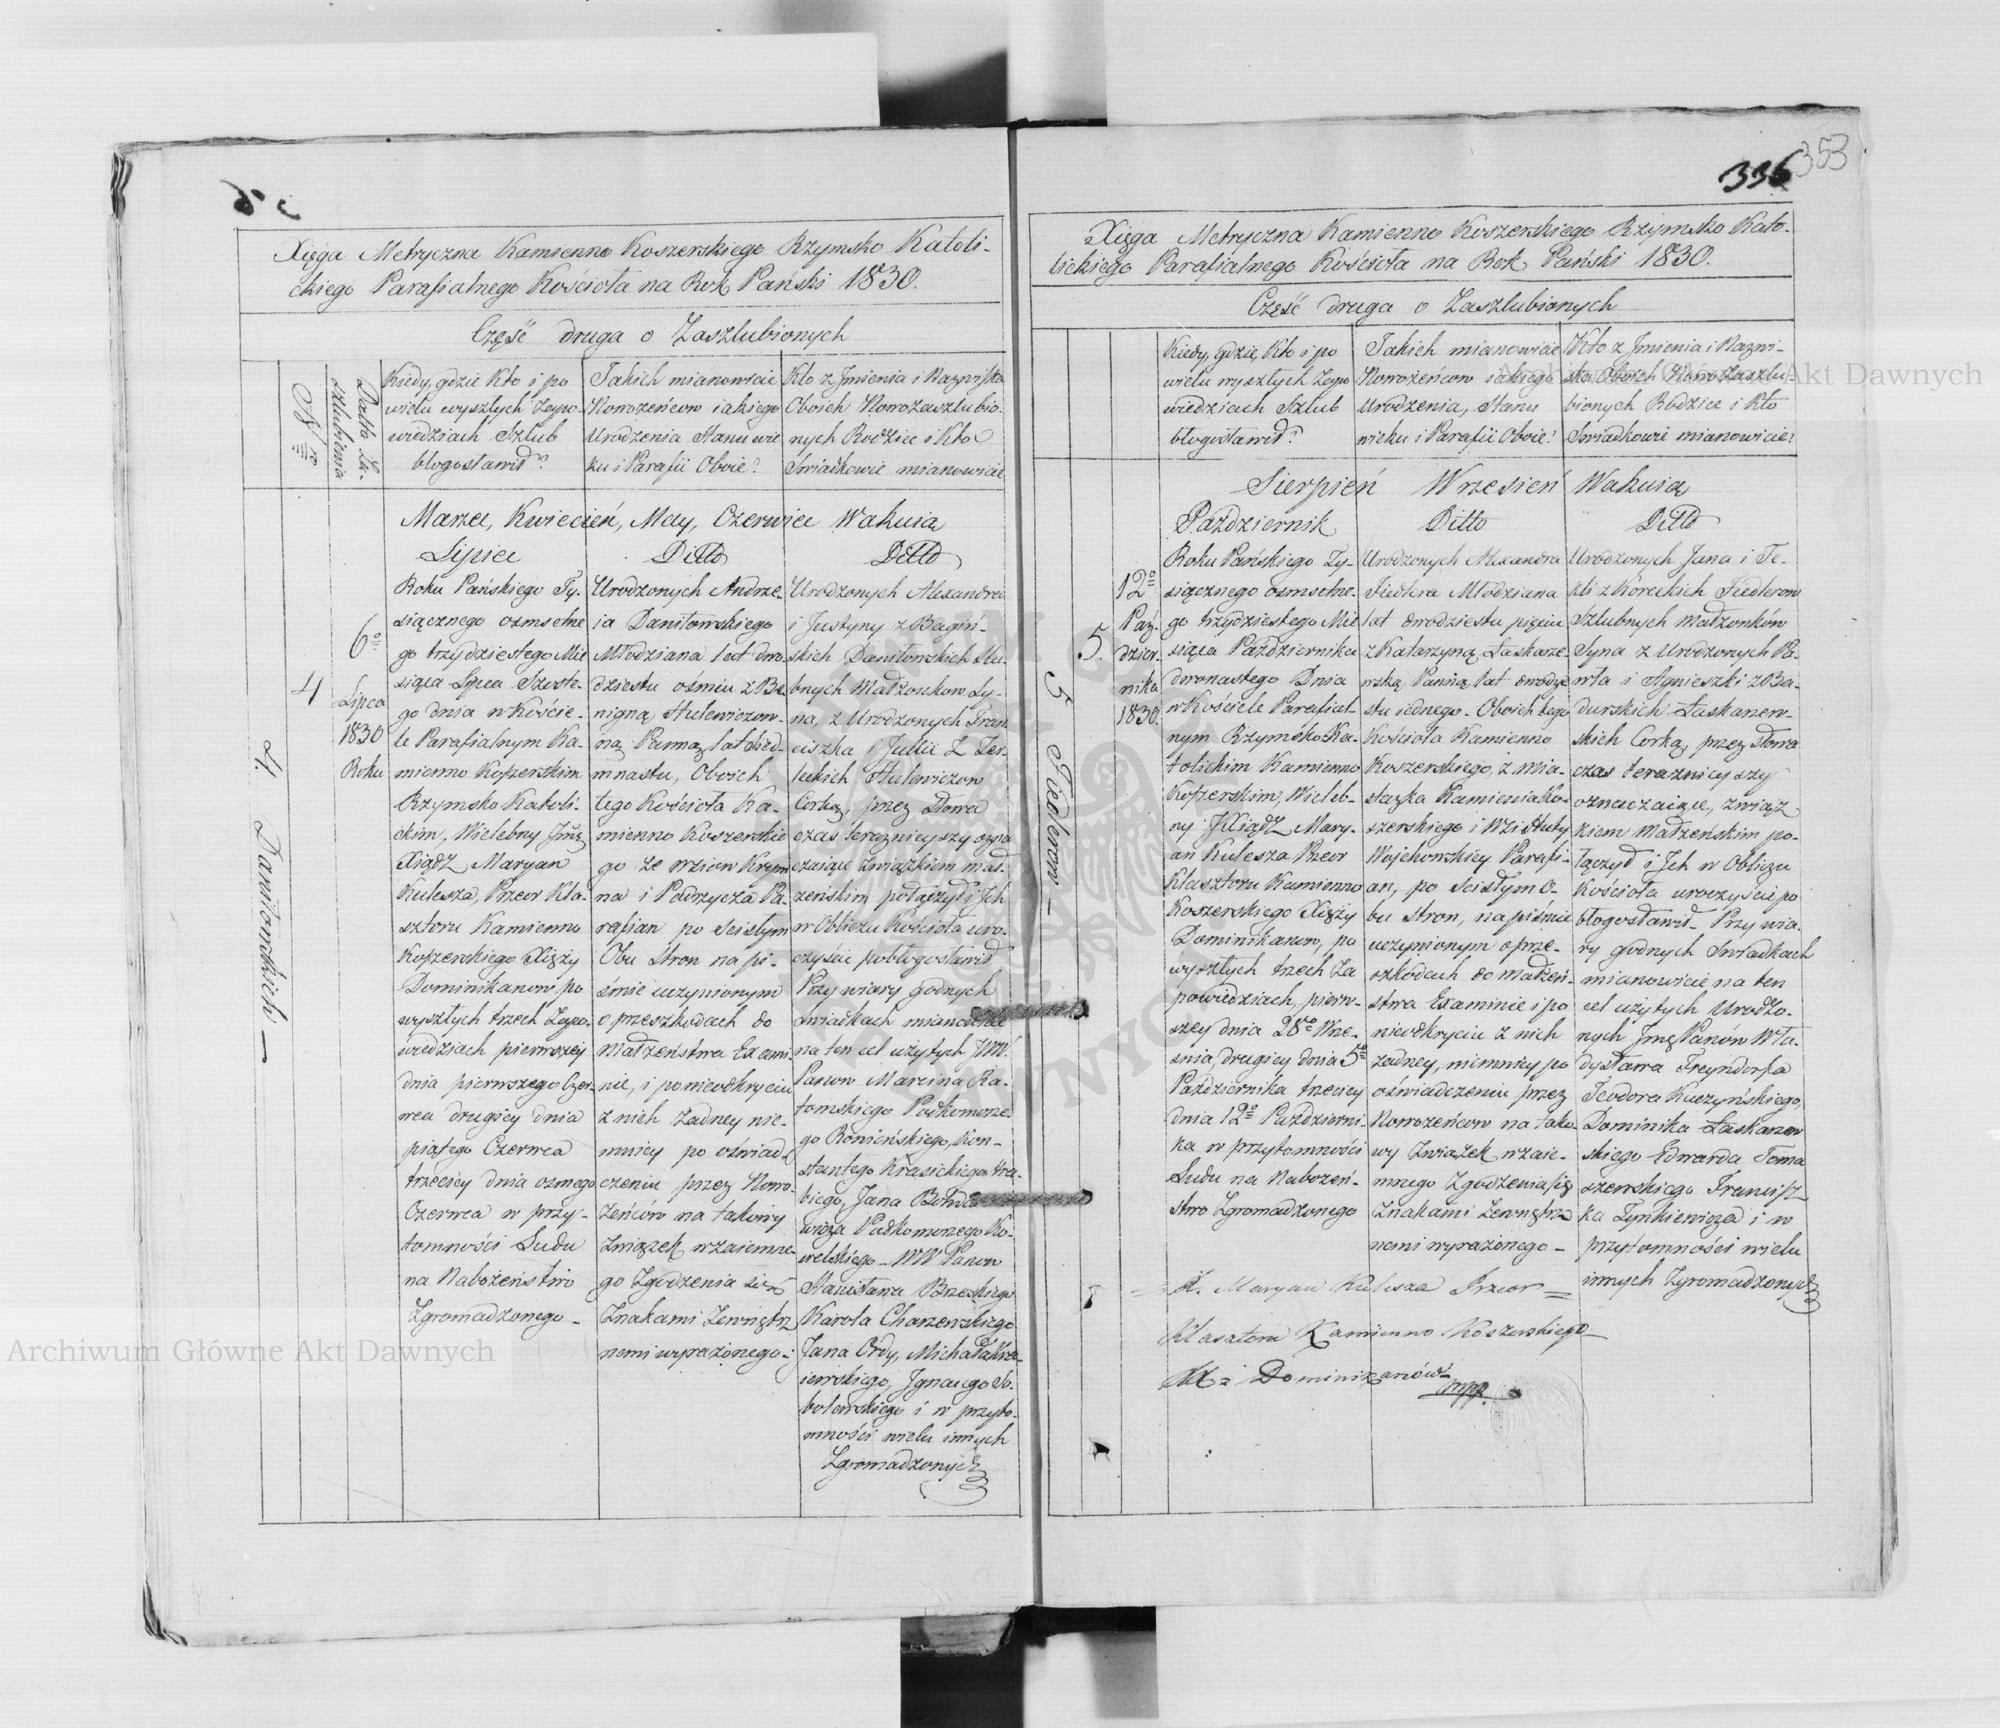 Xięga Metryczna Kamienno Koszerskiego Rzymsko Katoli-
ckiego Parafialnego Kościoła na Rok Pański 1830.
Część druga o Zaszlubionych
Nro
Datto Za-
szlubienia
Kiedy, gdzie Kto i po
wielu wyszłych Zapo-
wiedziach Szlub
błogosławił?
Jakich mianowicie
Nowożeńcow iakiego
Urodzenia Stanu wie
ku i Parafii Oboie?
Kto z Jmienia i Nazwiska
Oboich Nowozaszlubio-
nych Rodzice i Kto
Swiadkowie mianowicie
Marzec, Kwiecień, May, Czerwiec Wakuią
Lipiec Ditto Ditto
4. Daniłowskich —
4
6o
Lipca
1830
Roku
Roku Pańskiego Ty-
siącznego ośmsetne
go trzydziestego Mie
siąca Lipca Szoste-
go dnia w Koście-
le Parafialnym Ka-
mienno Koszerskim
Rzymsko Katoli-
ckim, Wielebny Jmć
Xiądz Maryan
Kulesza, Przeor Kla-
sztoru Kamienno
Koszerskiego Xięży
Dominikanow, po
wyszłych trzech Zapo-
wiedziach pierwszey
dnia pierwszego Czer-
wca drugiey dnia
piątego Czerwca
trzeciey dnia osmego
Czerwca w przy-
tomności Ludu
na Nabożeństwo
Zgromadzonego -
Urodzonych Andrze-
ia Daniłowskiego
Młodziana lat dwo
dziestu ośmiu z Be
nigną Hulewiczow-
ną Panną lat siede-
mnastu, Oboich
tego Kościoła Ka-
mienno Koszerskie
go ze wsiow Krym
na i Podrzycza Pa-
rafian po scisłym
Obu Stron na pi-
śmie uczynionym
o przeszkodach do
Małżeństwa Exami
nie, i po nieodkryciu
z nich żadney nie-
mniey po oświad-
czeniu przez Nowo-
żeńców na takowy
Związek wzaiemne-
go Zgodzenia się
Znakami Zewnętrz
nemi wyrażonego -
Urodzonych Alexandra
i Justyny z Bagiń-
skich Daniłowskich Szlu-
bnych Małżonkow Sy-
na, z Urodzonych Fran
ciszka i Julii z Ter-
leckich Hulewiczow
Corką, przez Słowa
czas teraznieyszy ozna
czaiące związkiem mał-
żeńskim połączył i Ich
w Obliczu Kościoła uro-
czyście pobłogosławił
Przy wiary godnych
Swiadkach mianowicie
na ten cel użytych JWW.
Panow Marcina Ra-
tomskiego Podkomorze-
go Rowieńskiego, Kon-
stantego Krasickiego Hra-
biego, Jana
Podkomorzego Ko-
welskiego - WW Panow
Stanisława Brzeskiego
Karola Charzewskiego
Jana Ordy, Michała
iewskiego, Jgnacego So-
bolewskiego i w przyto-
mności wielu innych
Zgromadzonych
336
353
Xięga Metryczna Kamienno Koszerskiego Rzymsko Kato-
lickiego Parafialnego Kościoła na Rok Pański 1830.
Część druga o Zaszlubionych
Kiedy, gdzie Kto i po
wielu wyszłych Zapo
wiedziach Szlub
błogosławił?
Jakich mianowicie
Nowożeńcow iakiego
Urodzenia, Stanu
wieku i Parafii Oboie?
Kto z Jmienia i Nazwi-
ska Oboich Nowozaszlu-
bionych Rodzice i Kto
Swiadkowie mianowicie?
Sierpień Wrzesień Wakuią
Październik Ditto Ditto
5 Fiedlerow —
5.
12o
Paź-
dzier-
nika
1830.
Roku Pańskiego Ty-
siącznego osmsetne-
go trzydziestego Mie
siąca Października
dwonastego Dnia
w Kościele Parafial-
nym Rzymsko Ka-
tolickim Kamienno
Koszerskim, Wieleb-
ny Xiądz Mary-
an Kulesza Przeor
Klasztoru Kamienno
Koszerskiego Xięży
Dominikanow, po
wyszłych trzech Za
powiedziach, pierw-
szey dnia 28go Wrze-
snia, drugiey dnia 5go
Października trzeciey
dnia 12o Październi-
ka w przytomności
Ludu na Nabożeń-
stwo Zgromadzonego
Urodzonych Alexandra
Fiedlera Młodziana
lat dwodziestu pięciu
z Katarzyną Łaskarze-
wską Panną lat dwodzie
stu iednego - Oboich tego
Kościoła Kamienno
Koszerskiego, z mia-
steczka Kamienia Ko-
szerskiego i Wsi Huty
Woiehowskiey Parafi-
an, po scisłym o-
bu stron, na piśmie
uczynionym o prze-
szkodach do małżeń-
stwa Examinie i po
nieodkryciu z nich
żadney, niemniey po
oświadczeniu przez
Nowożeńcow na tako-
wy Związek wzaie-
mnego Zgodzenia się
Znakami Zewnętrz-
nemi wyrażonego -
Urodzonych Jana i Te-
kli z Koreckich Fiedlerow
Szlubnych Małżonków
Syna z Urodzonych Pa-
wła i Agnieszki z Ba-
durskich Łaskarzew-
skich Corką, przez Słowa
czas teraznieyszy
oznaczaiące, związ-
kiem Małżeńskim po-
łączył i Jch w Obliczu
Kościoła uroczyście po
błogosławił - Przy wia-
ry godnych Swiadkach
mianowicie na ten
cel użytych Urodzo-
nych Jmć Panów Wła-
dysława Freyndorfa
Teodora Kuczyńskiego,
Dominika Łaskarzew
skiego Edwarda Toma
szewskiego Francisz-
ka Tynkiewicza i w
przytomności wielu
innych Zgromadzonych
X. Maryan Kulesza Przeor
Klasztoru Kamienno Koszerskiego
XX: Dominikanów
mpp.
Archiwum Główne Akt Dawnych
Archiwum Główne Akt Dawnych